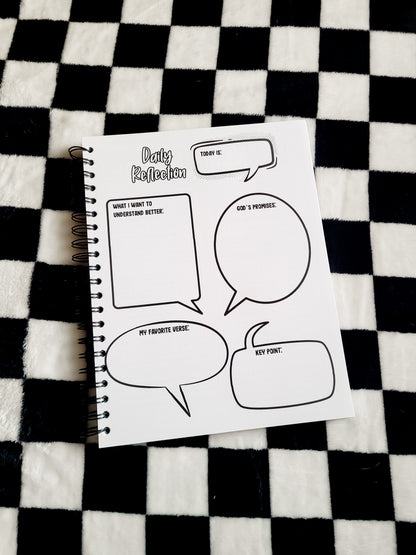 Daily
Reflection
TODAY IS:
WHAT I WANT TO
UNDERSTAND BETTER:
GOD'S PROMISES:
MY FAVORITE VERSE:
KEY POINT: